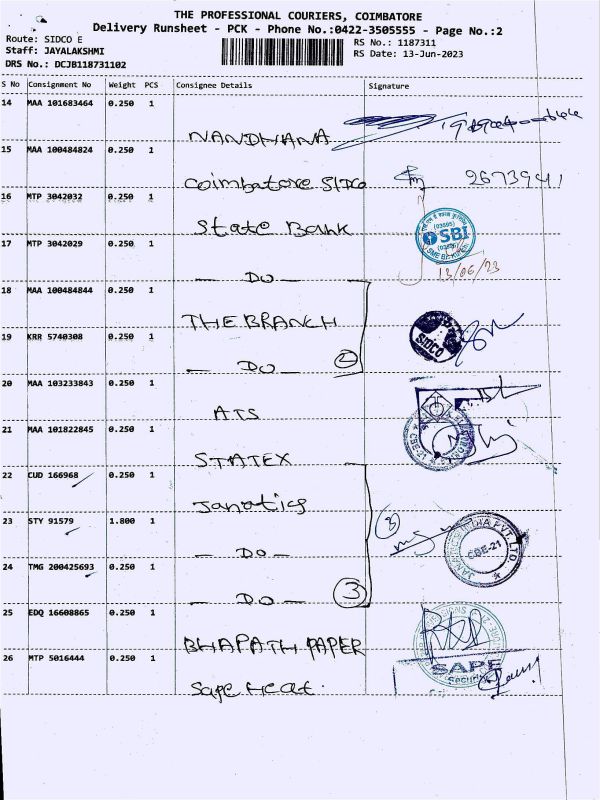 THE PROFESSIONAL COURIERS, COIMBATORE
Delivery Runsheet - PCK - Phone No.:0422-3505555 - Page No.:2
Route: SIDCO E
RS No.: 1187311
Staff: JAYALAKSHMI
RS Date: 13-Jun-2023
DRS No.: DCJB118731102
S No Consignment No Weight PCS Consignee Details Signature
14 MAA 101683464 0.250 1
NANDHANA
15 MAA 100484824 0.250 1
Coimbatore SIDCO 2673941
16 MTP 3042032 0.250 1
State Bank
SBI
17 MTP 3042029 0.250 1
— DO — 13/06/23
18 MAA 100484844 0.250 1
THE BRANCH
SIDCO
19 KRR 5740308 0.250 1
— DO — 2
20 MAA 103233843 0.250 1
ATS
21 MAA 101822845 0.250 1
CBE-21
STATEX
22 CUD 166968 0.250 1
Janatics
23 STY 91579 1.800 1
3
INDIA PVT. LTD.
CBE-21
— DO —
24 TMG 200425693 0.250 1
— DO — 3
25 EDQ 16608865 0.250 1
BHAPATH PAPER
26 MTP 5016444 0.250 1
SAPE
Security
Sape Heat.